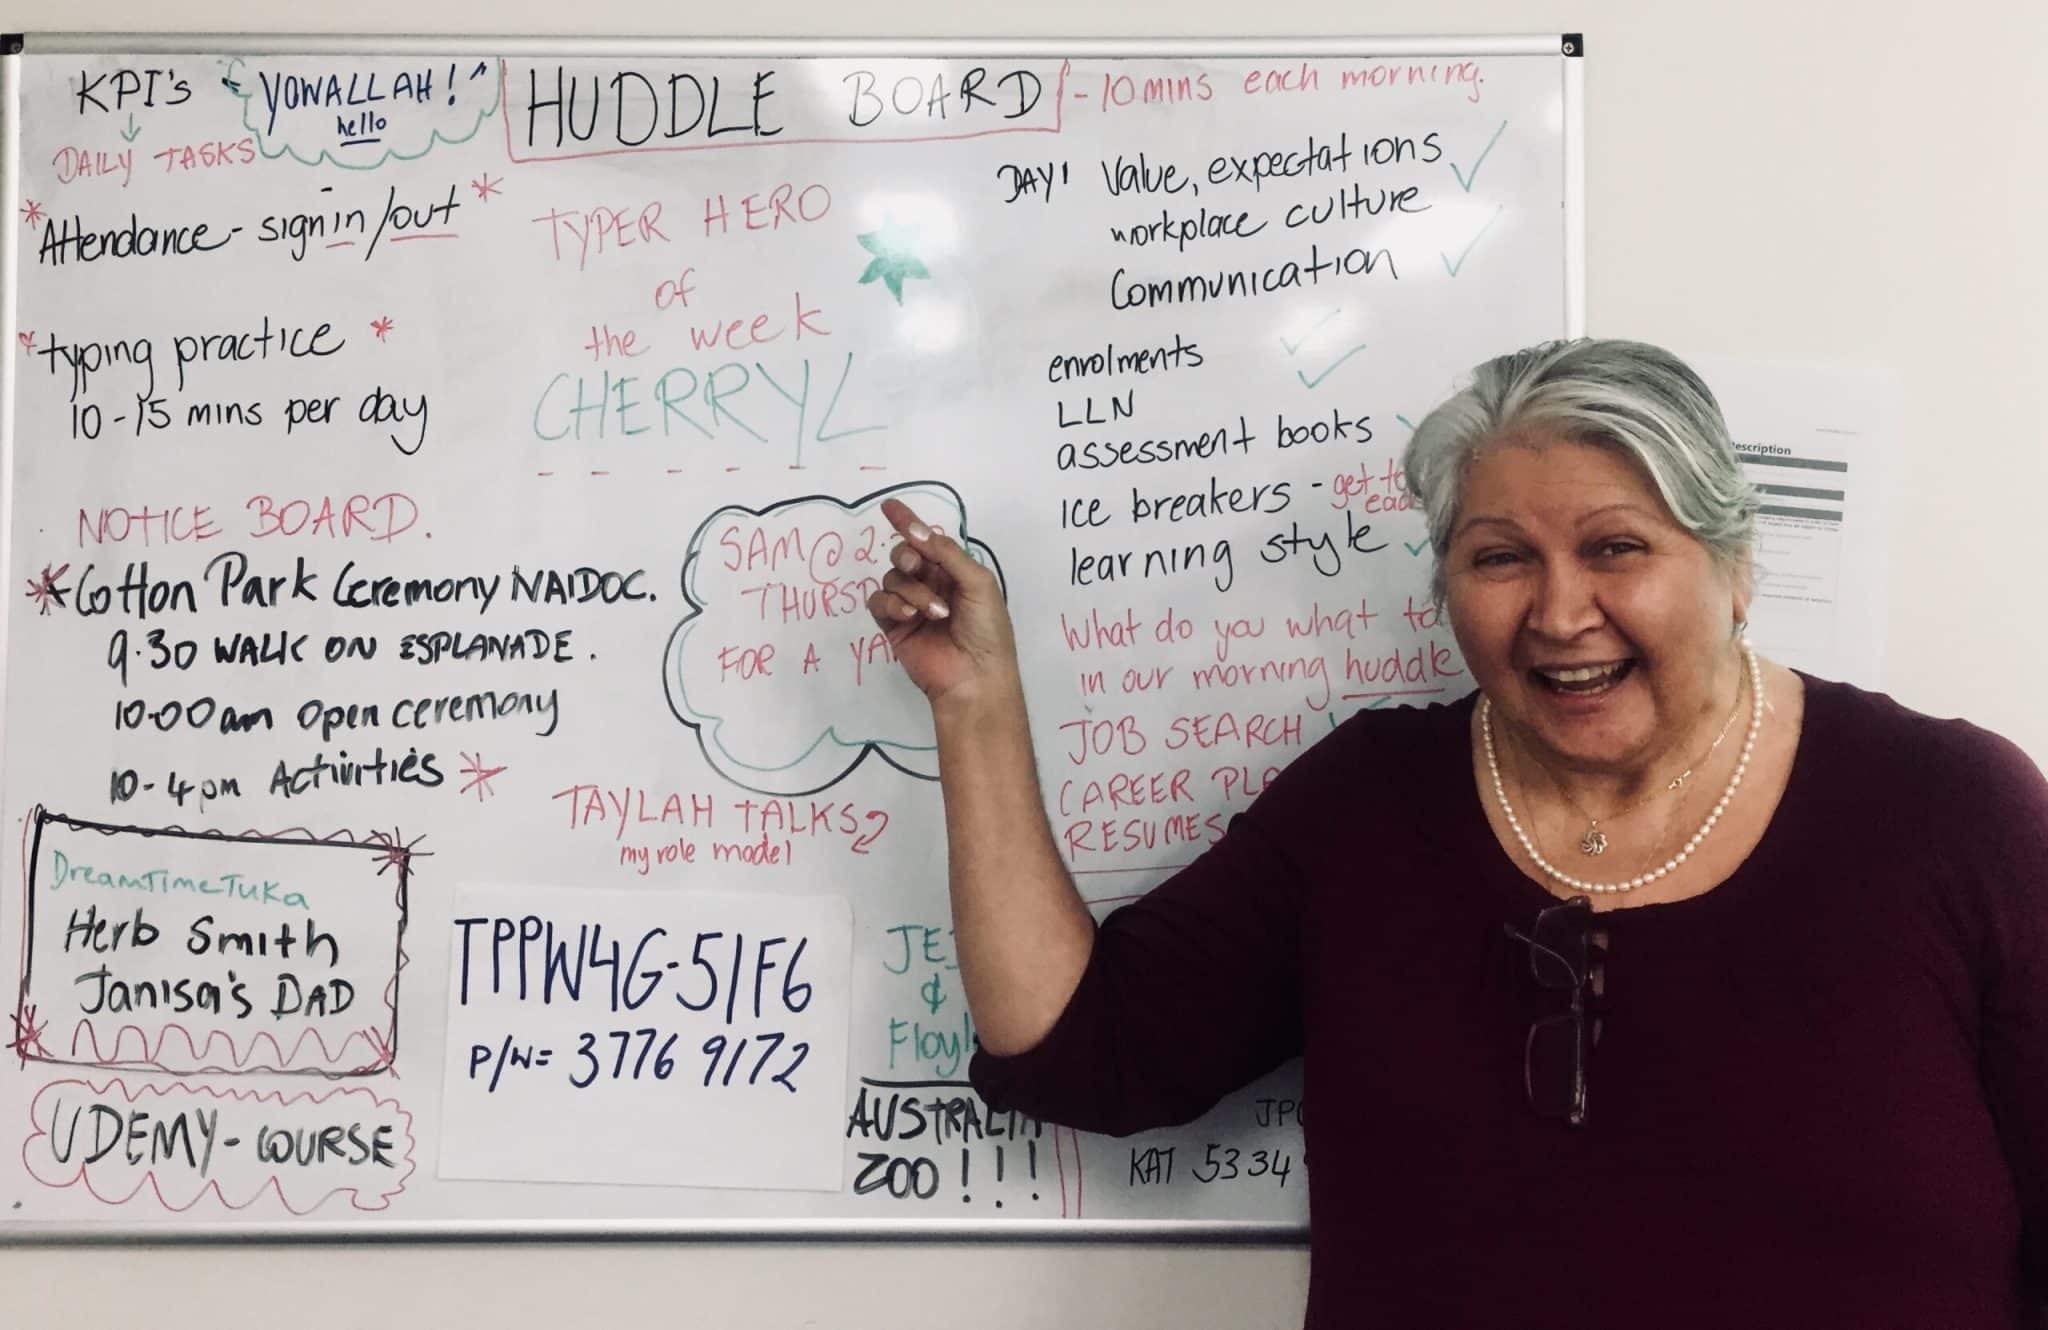 KPI's
DAILY TASKS
YOWALLAH!
hello
HUDDLE BOARD - 10 mins each morning.
* Attendance - sign in/out *
* typing practice *
10-15 mins per day
NOTICE BOARD.
* Cotton Park Ceremony NAIDOC.
9.30 WALK ON ESPLANADE.
10.00am Open ceremony
10-4pm Activities *
DreamTimeTuka
Herb Smith
Janisa's DAD
UDEMY - COURSE
TYPER HERO
of
the week
CHERRYL
SAM @ 2
THURS
FOR A YA
TAYLAH TALKS
my role model
TPPW4G-51F6
P/W= 3776 9172
&
AUSTRALIA
ZOO!!!
DAY 1 Value, expectations
workplace culture
Communication
enrolments
LLN
assessment books
Ice breakers - get to
learning style
What do you what to
in our morning huddle
JOB SEARCH
CAREER
RESUMES
KAT 5334
escription